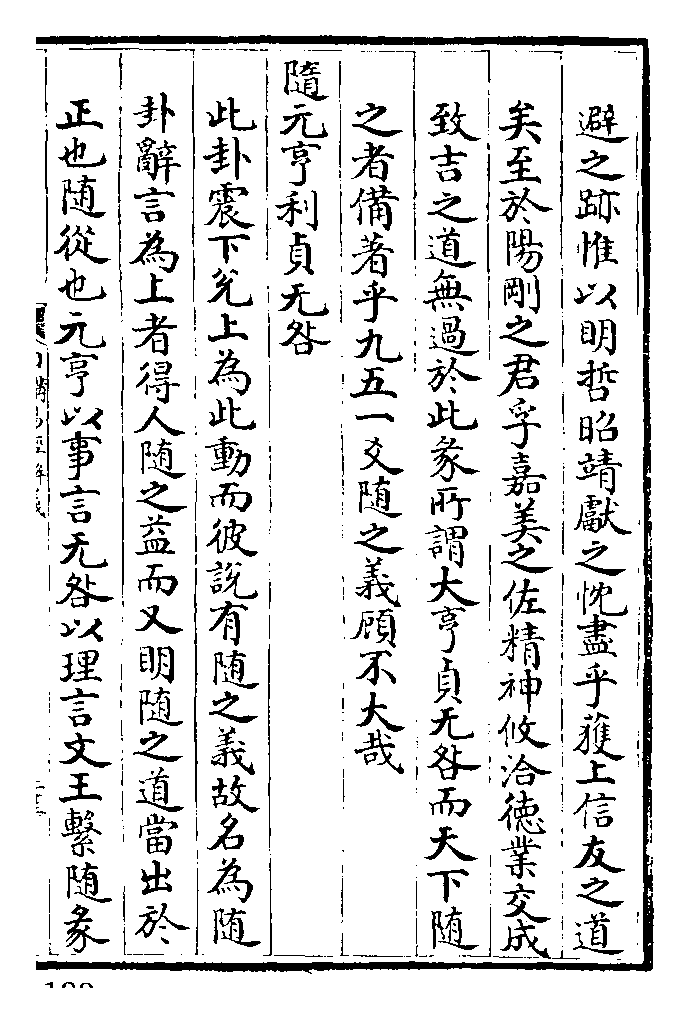 避之跡惟以明哲昭靖獻之忱盡乎獲上信友之道
矣至於陽剛之君孚嘉美之佐精神攸洽德業交成
致吉之道無過於此彖所謂大亨貞无咎而天下隨
之者備著乎九五一爻随之義顧不大哉
隨元亨利貞无咎
此卦震下兊上為此動而彼說有随之義故名為随
卦辭言為上者得人随之益而又明随之道當出於
正也随從也元亨以事言无咎以理言文王繫随彖
日講易經解義